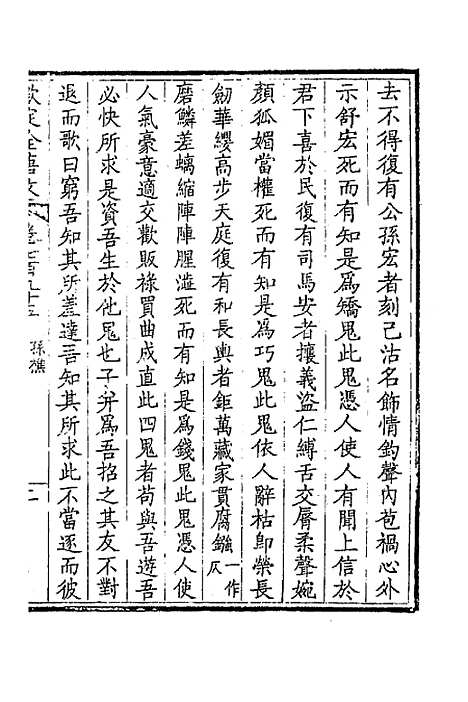 去不得復有公孫宏者刻己沽名飾情釣聲內苞禍心外
示舒宏死而有知是為矯鬼此鬼憑人使人有聞上信於
君下喜於民復有司馬安者攘義盜仁縛舌交脣柔聲婉
顏狐媚當權死而有知是為巧鬼此鬼依人辭枯即榮長
劒華纓高步天庭復有和長輿者鉅萬藏家貫腐鏹一作仄
磨鱗差螭縮陣陣腥澁死而有知是為錢鬼此鬼憑人使
人氣豪意適交歡販祿買曲成直此四鬼者苟與吾遊吾
必快所求是資吾生於他鬼也子并為吾招之其友不對
退而歌曰窮吾知其所羞達吾知其所求此不當逐而彼
欽定全唐文 卷七百九十五 孫樵 二